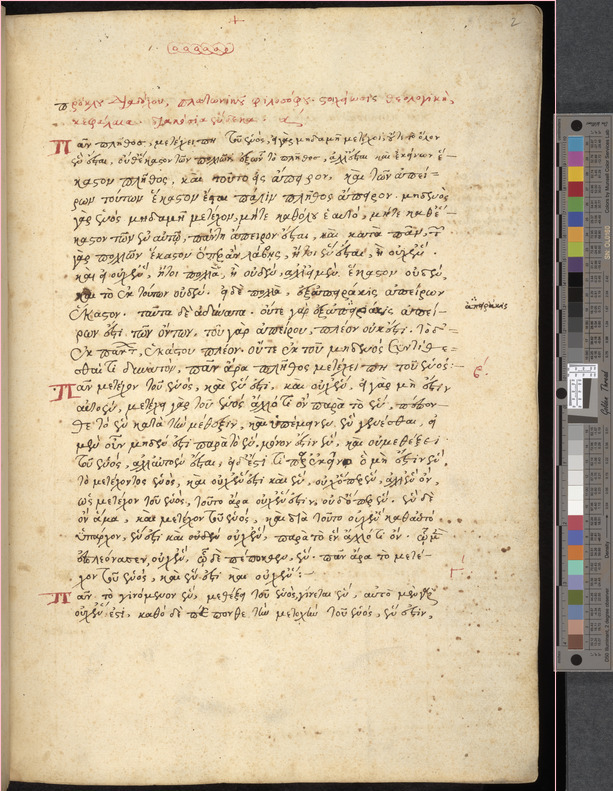 2
πρόκλου διαδόχου, πλατωνικοῦ φιλοσόφου, στοιχείωσις θεολογική,
κεφάλαια
Πᾶν πλῆθος, μετέχει πῃ τοῦ ἑνός, εἰ γὰρ μηδαμῇ μετέχοι, οὔτε τὸ ὅλον
ἓν ἔσται, οὔθ' ἕκαστον τῶν πολλῶν ἐξ ὧν τὸ πλῆθος, ἀλλ' ἔσται καὶ ἐκείνων ἕ-
καστον πλῆθος, καὶ τοῦτο εἰς ἄπειρον, καὶ τῶν ἀπεί-
ρων τούτων ἕκαστον ἔσται πάλιν πλῆθος ἄπειρον. μηδενὸς
γὰρ ἑνὸς μηδαμῇ μετέχον, μήτε καθ' ὅλον ἑαυτό, μήτε καθ' ἕ-
καστον τῶν ἐν αὐτῷ, πάντῃ ἄπειρον ἔσται, καὶ κατὰ πᾶν, τῶν
γὰρ πολλῶν ἕκαστον ὅπερ ἂν λάβῃς, ἤτοι ἓν ἔσται, ἢ οὐχ ἕν.
καὶ εἰ οὐχ ἕν, ἤτοι πολλά, ἢ οὐδέν, ἀλλ' εἰ μὲν ἕκαστον οὐδέν,
καὶ τὸ ἐκ τούτων οὐδέν. εἰ δὲ πολλά, ἐξ ἀπειράκις ἀπείρων
ἕκαστον. ταῦτα δὲ ἀδύνατα. οὔτε γὰρ ἐξ ἀπειράκις ἀπεί-
ρων ἐστί τι τῶν ὄντων, τοῦ γὰρ ἀπείρου, πλέον οὐκ ἔστι. τὸ δ'
ἐκ πάντων, ἑκάστου πλέον. οὔτε ἐκ τοῦ μηδενὸς συντίθε-
σθαί τι δυνατόν, πᾶν ἄρα πλῆθος μετέχει πῃ τοῦ ἑνός:
ἀπειράκις
β
Πᾶν μετέχον τοῦ ἑνός, καὶ ἕν ἐστι, καὶ οὐχ ἕν, εἰ γὰρ μὴ ἔστιν
αὐτοέν, μετέχει γὰρ τοῦ ἑνὸς ἄλλό τι ὂν παρὰ τὸ ἕν, πέπον-
θε τὸ ἓν κατὰ τὴν μέθεξιν, καὶ ὑπέμεινεν ἓν γενέσθαι, εἰ
μὲν οὖν μηδέν ἐστι παρὰ τὸ ἕν, μόνον ἔστιν ἕν, καὶ οὐ μεθέξει
τοῦ ἑνός, ἀλλ' αὐτοὲν ἔσται, εἰ δ' ἔστι τι παρ' ἐκεῖνο ὃ μὴ ἔστιν ἕν,
τὸ μετέχον τοῦ ἑνός, καὶ οὐχ ἕν ἐστι καὶ ἕν, οὐχ ὅπερ ἕν, ἀλλ' ἓν ὄν,
ὡς μετέχον τοῦ ἑνός, τοῦτο ἄρα οὐχ ἕν ἐστιν, οὐδ' ὅπερ ἕν, ἓν δὲ
ὂν ἅμα, καὶ μετέχον τοῦ ἑνός, καὶ διὰ τοῦτο οὐχ ἓν καθ' αὑτὸ
ὑπάρχον, ἕν ἐστι καὶ οὐχ ἕν, παρὰ τὸ ἓν ἄλλό τι ὄν. ᾧ μὲν
ἐπλεόνασεν, οὐχ ἕν, ᾧ δὲ πέπονθεν, ἕν. πᾶν ἄρα τὸ μετέ-
χον τοῦ ἑνός, καὶ ἕν ἐστι καὶ οὐχ ἕν:
Γ
Πᾶν τὸ γινόμενον ἕν, μεθέξει τοῦ ἑνὸς γίνεται ἕν, αὐτὸ μὲν γὰρ
οὐχ ἕν ἐστι, καθὸ δὲ πέπονθε τὴν μετοχὴν τοῦ ἑνός, ἕν ἐστιν,